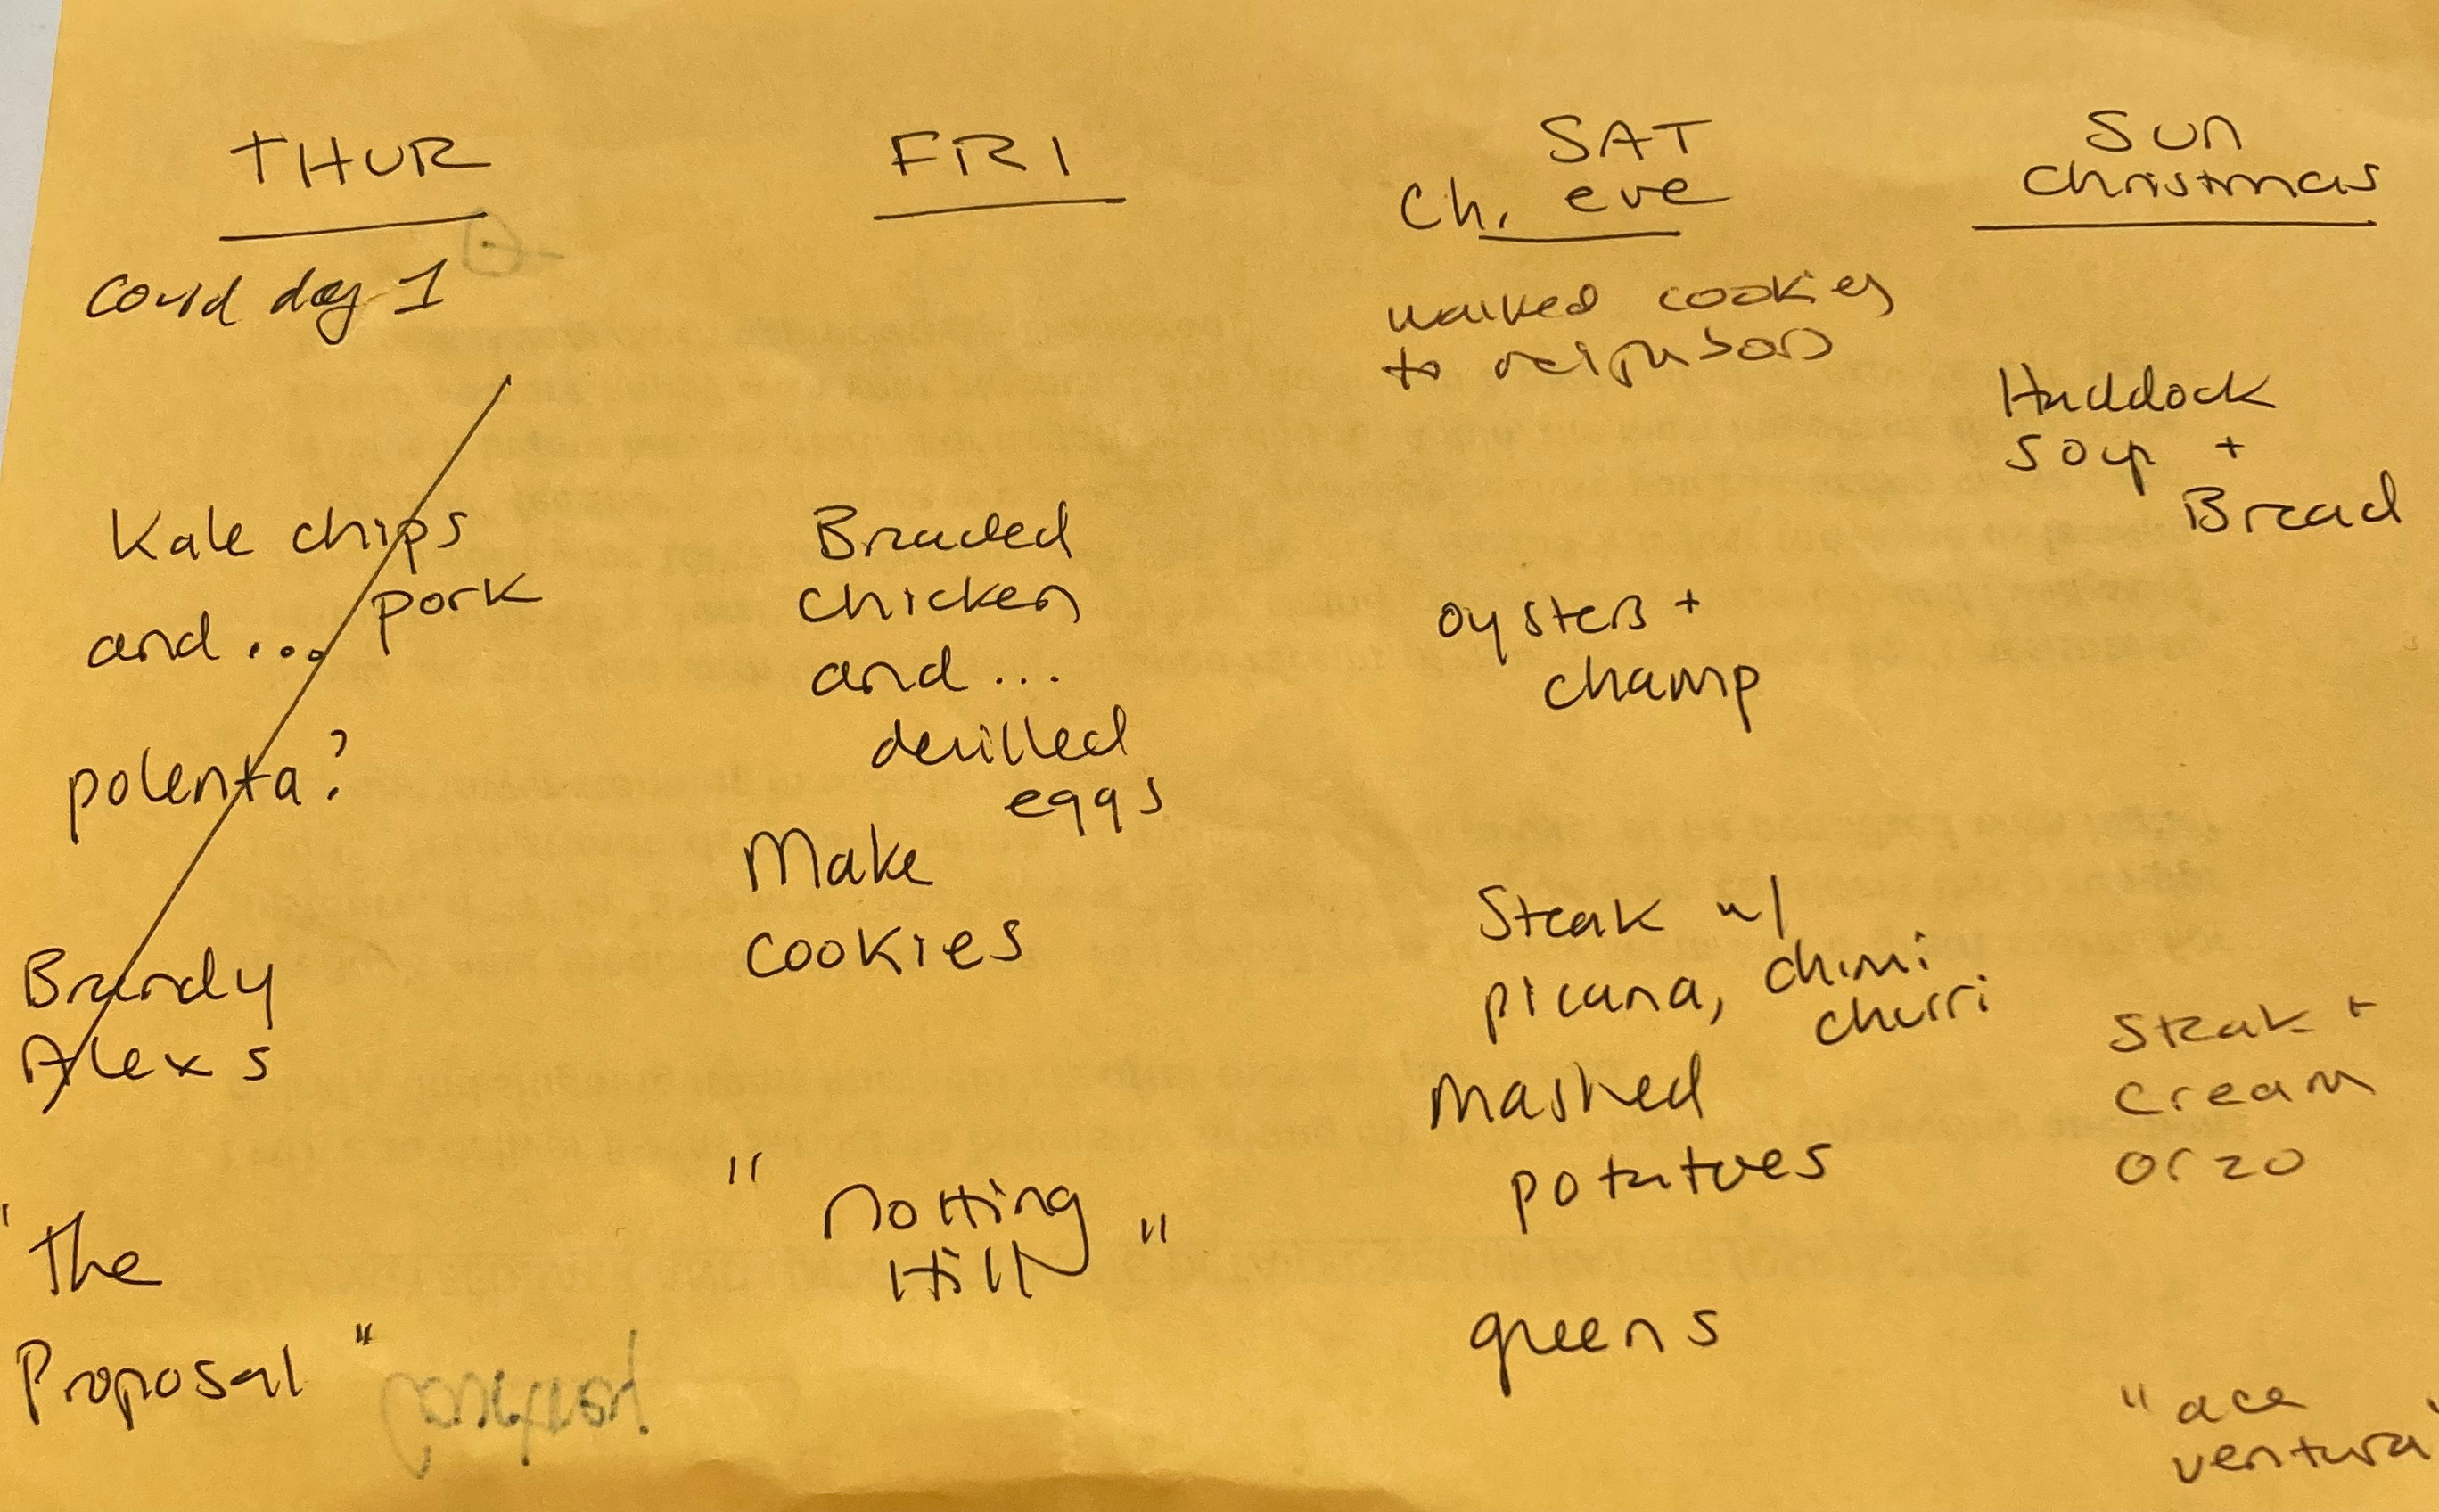 THUR
covid day 1
Kale chips
and ... pork
polenta?
Brandy
Alexs
"The
Proposal"
FRI
Breaded
chicken
and ...
devilled
eggs
Make
cookies
"Notting
Hill"
SAT
Ch. eve
walked cookies
to neighbors
oysters +
champ
Steak w/
picana, chimi
churri
mashed
potatoes
greens
SUN
christmas
Haddock
soup +
Bread
Steak +
cream
orzo
"ace
ventura"